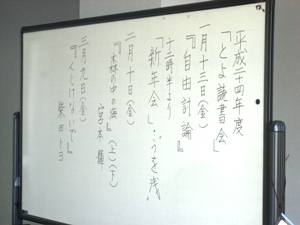 平成二十四年度
「とよ読書会」
一月十三日(金)
『自由討論』
十二時半より
「新年会」うを浅
二月十日(金)
『森の中の海』(上)(下)
宮本輝
三月九日(金)
『くじけないで』
柴田トヨ